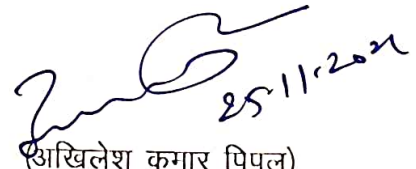 25-11-202
(अखिलेश कुमार पिपल)